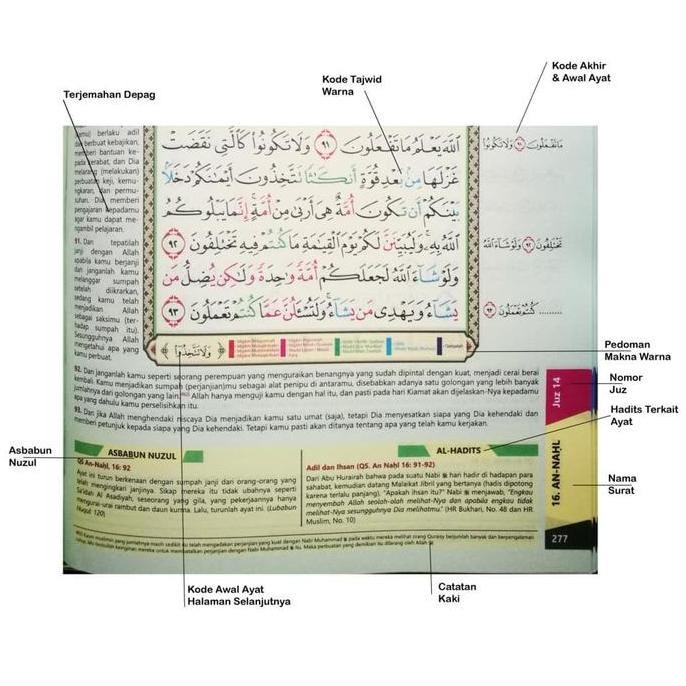 Kode Akhir
& Awal Ayat
Kode Tajwid
Warna
Terjemahan Depag
kamu) berlaku adil
dan berbuat kebajikan,
memberi bantuan ke-
pada kerabat, dan Dia
melarang (melakukan)
perbuatan keji, kemu-
ngkaran, dan permu-
suhan. Dia memberi
pengajaran kepadamu
agar kamu dapat me-
ngambil pelajaran.
91. Dan tepatilah
janji dengan Allah
apabila kamu berjanji
dan janganlah kamu
melanggar sumpah
setelah diikrarkan,
sedang kamu telah
menjadikan Allah
sebagai saksimu (ter-
hadap sumpah itu).
Sesungguhnya Allah
mengetahui apa yang
kamu perbuat.
اللّٰهَ يَعْلَمُ مَا تَفْعَلُوْنَ ٩١ وَلَا تَكُوْنُوْا كَالَّتِيْ نَقَضَتْ
غَزْلَهَا مِنْۢ بَعْدِ قُوَّةٍ اَنْكَاثًا تَتَّخِذُوْنَ اَيْمَانَكُمْ دَخَلًا
بَيْنَكُمْ اَنْ تَكُوْنَ اُمَّةٌ هِيَ اَرْبٰى مِنْ اُمَّةٍ اِنَّمَا يَبْلُوْكُمُ
اللّٰهُ بِهٖ وَلَيُبَيِّنَنَّ لَكُمْ يَوْمَ الْقِيٰمَةِ مَا كُنْتُمْ فِيْهِ تَخْتَلِفُوْنَ ٩٢
وَلَوْ شَاۤءَ اللّٰهُ لَجَعَلَكُمْ اُمَّةً وَّاحِدَةً وَّلٰكِنْ يُّضِلُّ مَنْ
يَّشَاۤءُ وَيَهْدِيْ مَنْ يَّشَاۤءُ وَلَتُسْـَٔلُنَّ عَمَّا كُنْتُمْ تَعْمَلُوْنَ ٩٣
مَا تَفْعَلُوْنَ ٩١ وَلَا تَكُوْنُوْا
تَخْتَلِفُوْنَ ٩٢ وَلَوْ شَاۤءَ اللّٰهُ
كُنْتُمْ تَعْمَلُوْنَ ٩٣ ..........
وَلَا تَتَّخِذُوْٓا
Pedoman
Makna Warna
92. Dan janganlah kamu seperti seorang perempuan yang menguraikan benangnya yang sudah dipintal dengan kuat, menjadi cerai berai
kembali. Kamu menjadikan sumpah (perjanjian)mu sebagai alat penipu di antaramu, disebabkan adanya satu golongan yang lebih banyak
jumlahnya dari golongan yang lain. Allah hanya menguji kamu dengan hal itu, dan pasti pada hari Kiamat akan dijelaskan-Nya kepadamu
apa yang dahulu kamu perselisihkan itu.
93. Dan jika Allah menghendaki niscaya Dia menjadikan kamu satu umat (saja), tetapi Dia menyesatkan siapa yang Dia kehendaki dan
memberi petunjuk kepada siapa yang Dia kehendaki. Tetapi kamu pasti akan ditanya tentang apa yang telah kamu kerjakan.
Juz 14
Nomor
Juz
Hadits Terkait
Ayat
Asbabun
Nuzul
ASBABUN NUZUL
QS An-Naḥl, 16: 92
Ayat ini turun berkenaan dengan sumpah janji dari orang-orang yang
telah mengingkari janjinya. Sikap mereka itu tidak ubahnya seperti
Sa'idah Al Asadiyah, seseorang yang gila, yang pekerjaannya hanya
mengurai-urai rambut dan daun kurma. Lalu, turunlah ayat ini. (Lubabun
Nuqul 120)
AL-HADITS
Adil dan Ihsan (QS. An Nahl 16: 91-92)
Dari Abu Hurairah bahwa pada suatu Nabi ﷺ hari hadir di hadapan para
sahabat, kemudian datang Malaikat Jibril yang bertanya (hadis dipotong
karena terlalu panjang), "Apakah ihsan itu?" Nabi ﷺ menjawab, "Engkau
menyembah Allah seolah-olah melihat-Nya dan apabila engkau tidak
melihat-Nya sesungguhnya Dia melihatmu." (HR Bukhari, No. 48 dan HR
Muslim, No. 10)
16. AN-NAḤL
Nama
Surat
277
Kode Awal Ayat
Halaman Selanjutnya
Catatan
Kaki